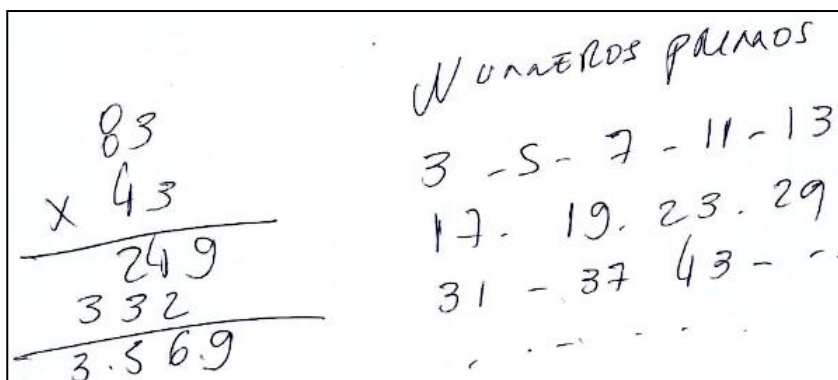 83
x 43
249
332
3.569
NUMEROS PRIMOS
3 - 5 - 7 - 11 - 13
17. 19. 23. 29
31 - 37 43 - -
. . - . . .